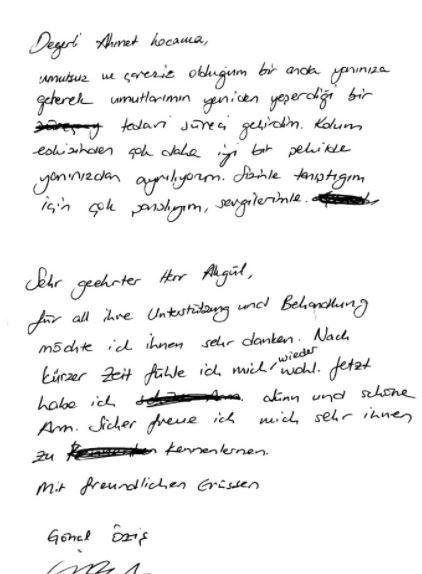 Değerli Ahmet hocama,
umutsuz ve çaresiz olduğum bir anda yanınıza
gelerek umutlarımın yeniden yeşerdiği bir
tedavi süreci geçirdim. Kolum
eskisinden çok daha iyi bir şekilde
yanınızdan ayrılıyorum. Sizinle tanıştığım
için çok şanslıyım, sevgilerimle.
Sehr geehrter Herr Akgül,
für all ihre Unterstützung und Behandlung
möchte ich ihnen sehr danken. Nach
kürzer Zeit fühle ich mich wieder wohl. Jetzt
habe ich dünn und schöne
Arm. Sicher freue ich mich sehr ihnen
zu kennenlernen.
Mit freundlichen Grüssen
Gönül Öziş